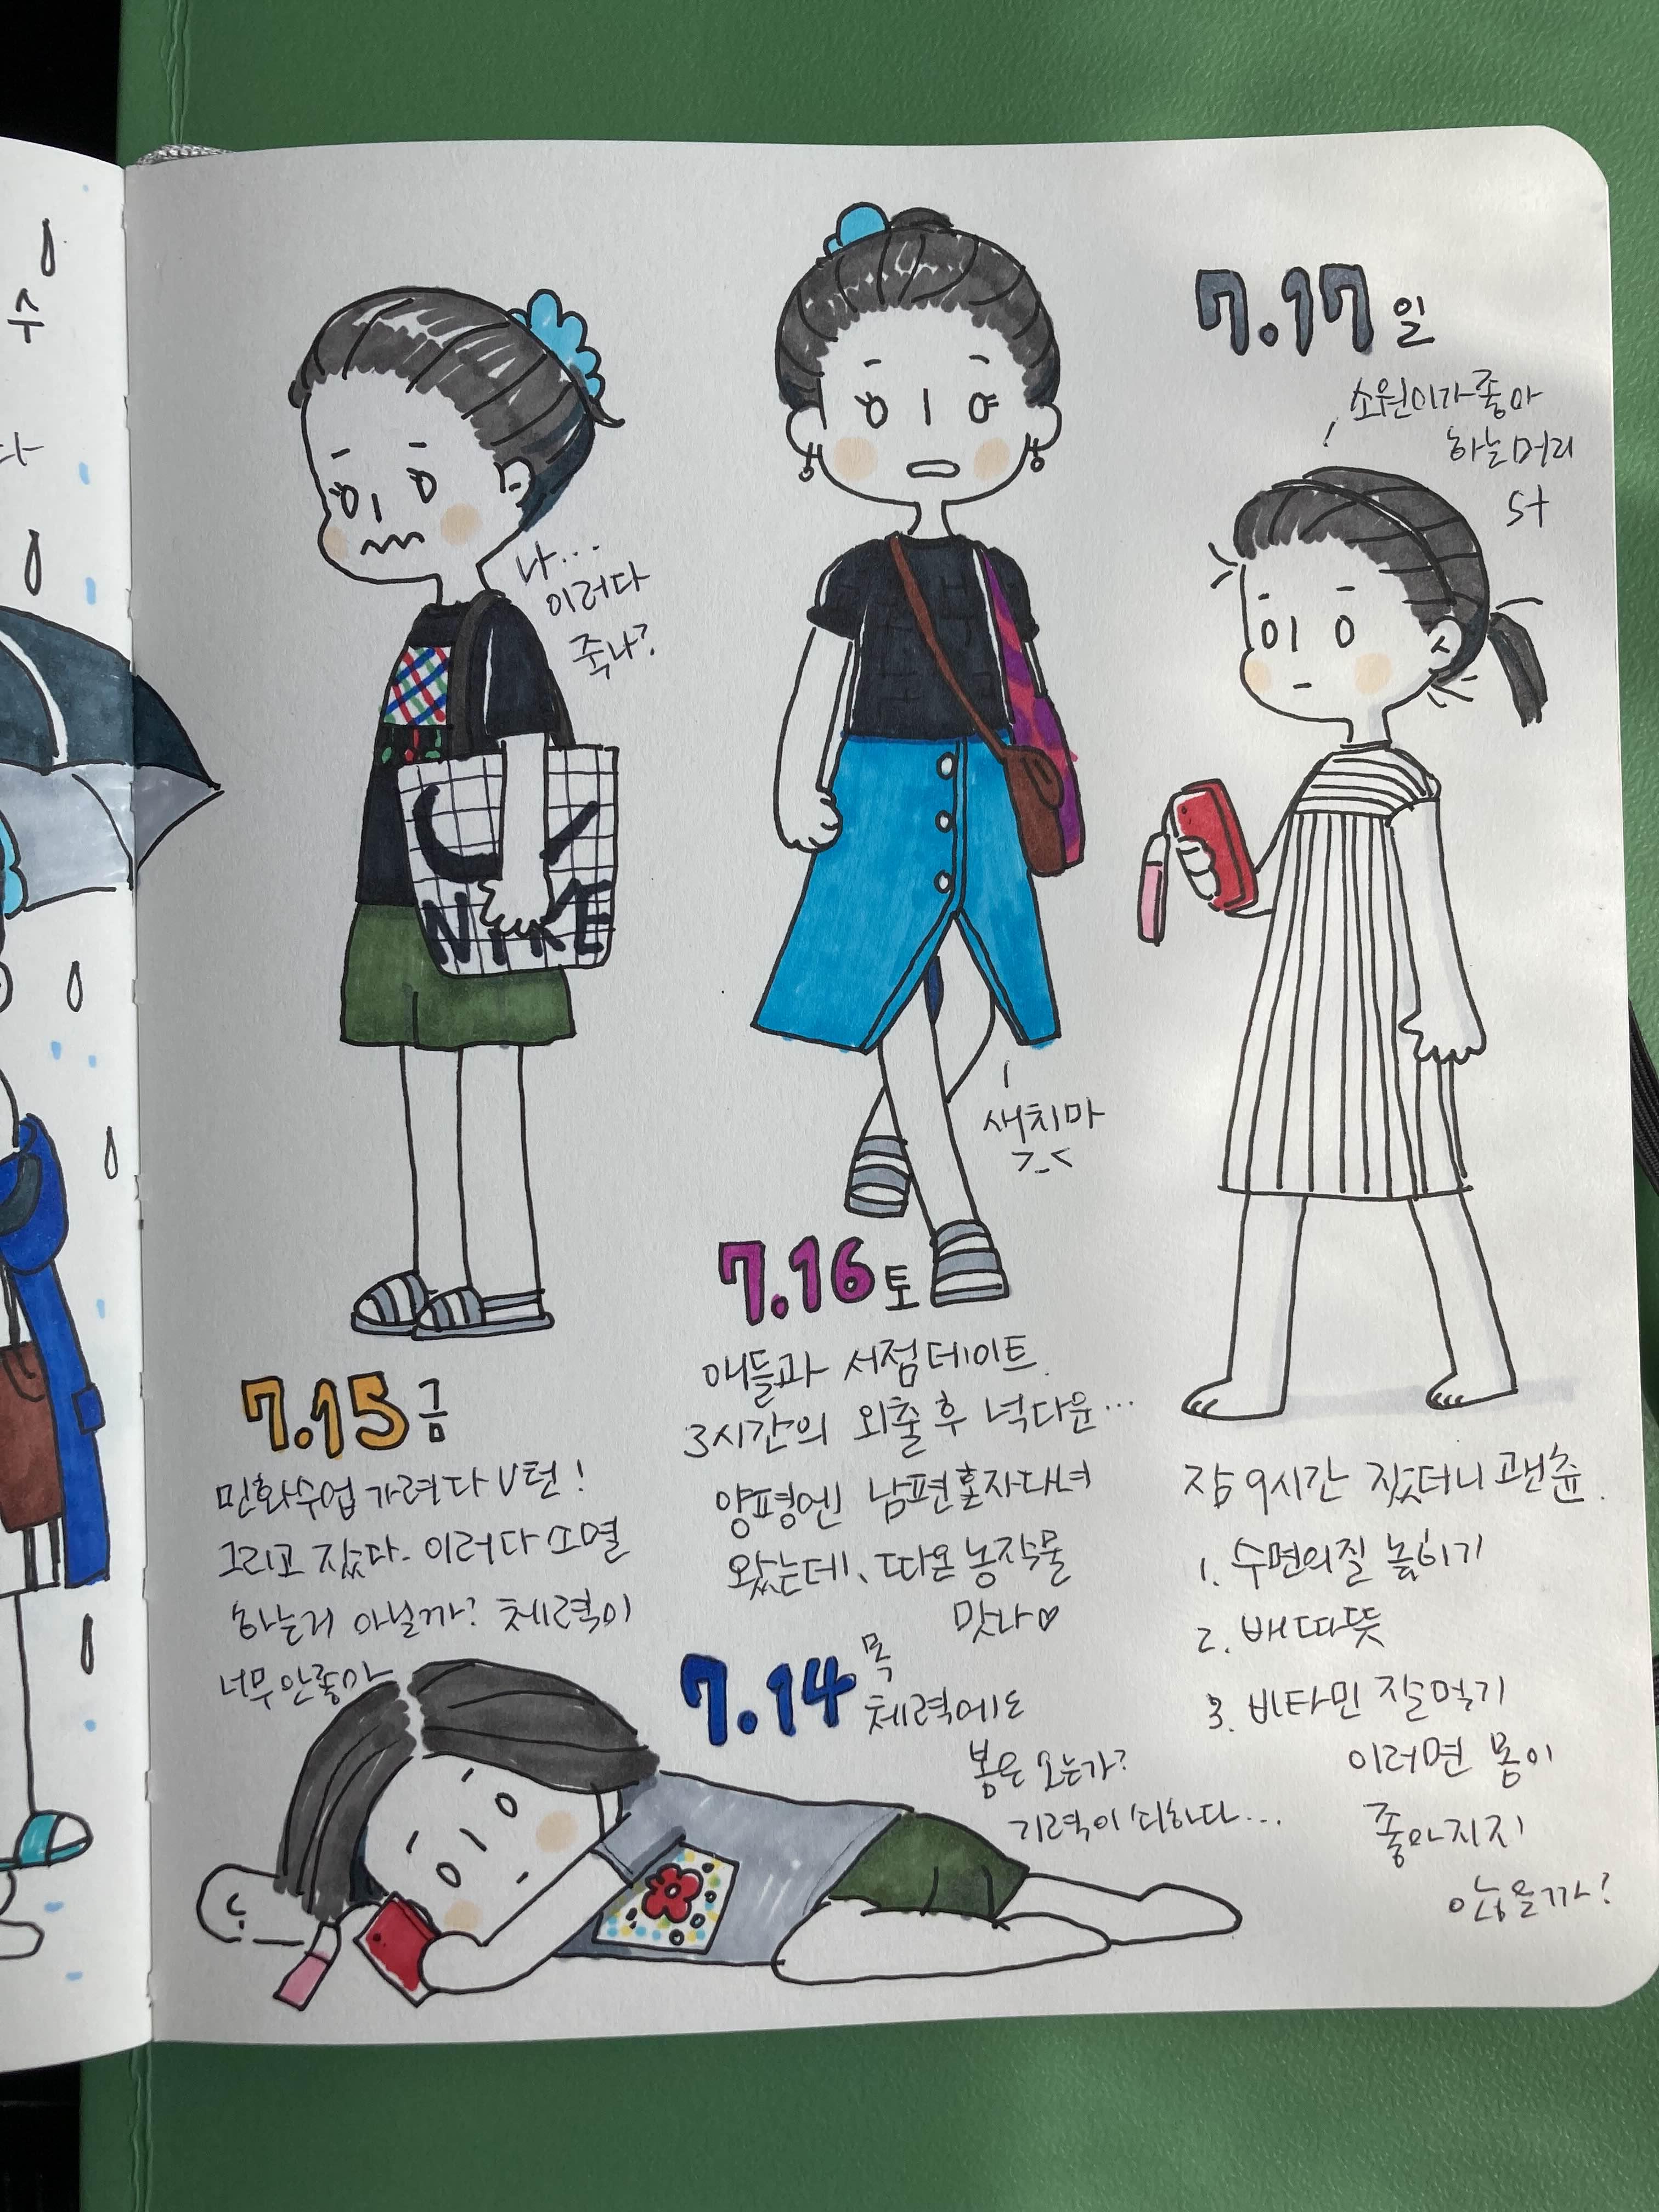 수
다
나...
이러다
죽나?
NIKE
7.15 금
민화수업 가려다 U턴!
그리고 잤다. 이러다 소멸
하는거 아닐까? 체력이
너무 안좋아
새치마
>_<
7.16 토
애들과 서점데이트.
3시간의 외출 후 넉다운...
양평엔 남편혼자다녀
왔는데, 따온 농작물
맛나♡
7.14 목
체력에도
봄은 오는가?
기력이 쇠하다...
7.17 일
소원이가좋아
하는머리
st
잠 9시간 잤더니 괜춘.
1. 수면의질 높히기
2. 배따뜻
3. 비타민 잘먹기
이러면 몸이
좋아지지
않을까?